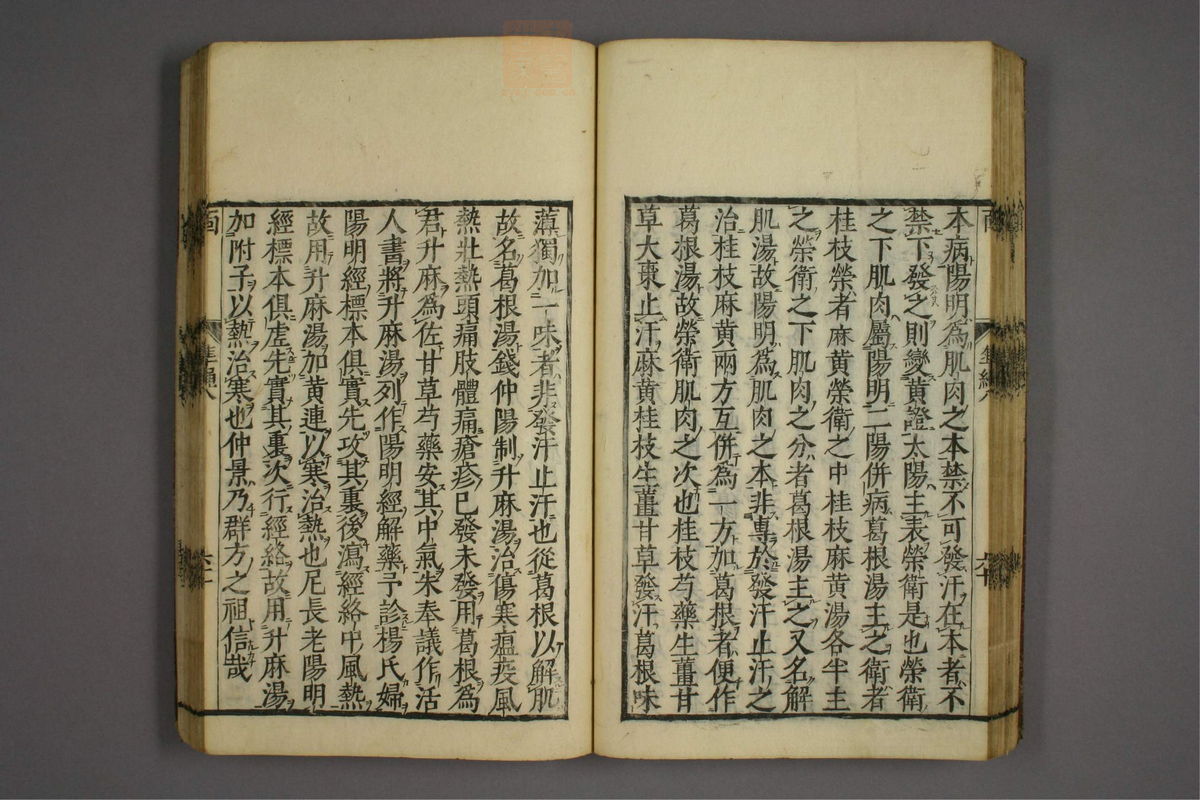 本病陽明為肌肉之本禁不可發汗在本者不
禁下發之則變黄證太陽主表榮衛是也榮衛
之下肌肉屬陽明二陽併病葛根湯主之衛者
桂枝榮者麻黄榮衛之中桂枝麻黄湯各半主
之榮衛之下肌肉之分者葛根湯主之又名解
肌湯故陽明為肌肉之本非專於發汗止汗之
治桂枝麻黄兩方互併為一方加葛根者便作
葛根湯故榮衛肌肉之次也桂枝芍藥生薑甘
草大棗止汗麻黄桂枝生薑甘草發汗葛根味
薄獨加一味者非發汗止汗也從葛根以解肌
故名葛根湯錢仲陽制升麻湯治傷寒瘟疫風
熱壯熱頭痛肢體痛瘡疹已發未發用葛根為
君升麻為佐甘草芍藥安其中氣朱奉議作活
人書將升麻湯列作陽明經解藥予診楊氏婦
陽明經標本俱實先攻其裏後瀉經絡中風熱
故用升麻湯加黄連以寒治熱也尼長老陽明
經標本俱虛先實其裏次行經絡故用升麻湯
加附子以熱治寒也仲景乃群方之祖信哉